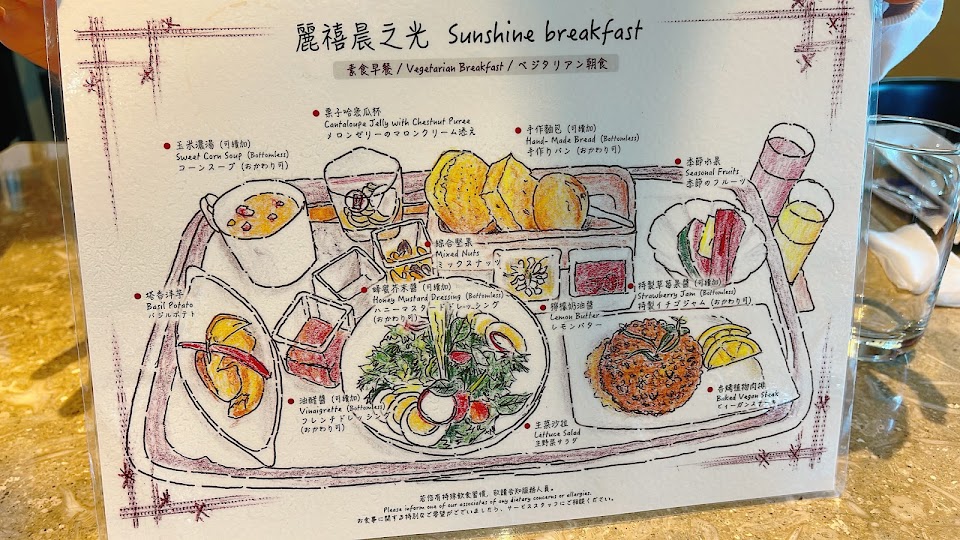 麗禧晨之光 Sunshine breakfast
素食早餐 / Vegetarian Breakfast / ベジタリアン朝食
栗子哈密瓜杯
Cantaloupe Jelly with Chestnut Puree
メロンゼリーのマロンクリーム添え
手作麵包 (可續加)
Hand- Made Bread (Bottomless)
手作りパン (おかわり可)
玉米濃湯 (可續加)
Sweet Corn Soup (Bottomless)
コーンスープ (おかわり可)
季節水果
Seasonal Fruits
季節のフルーツ
綜合堅果
Mixed Nuts
ミックスナッツ
蜂蜜芥末醬 (可續加)
Honey Mustard Dressing (Bottomless)
ハニーマスタードドレッシング
(おかわり可)
檸檬奶油醬
Lemon Butter
レモンバター
特製草莓果醬 (可續加)
Strawberry Jam (Bottomless)
特製イチゴジャム (おかわり可)
塔香洋芋
Basil Potato
バジルポテト
油醋醬 (可續加)
Vinaigrette (Bottomless)
フレンチドレッシング
(おかわり可)
生菜沙拉
Lettuce Salad
生野菜サラダ
香烤植物肉排
Baked Vegan Steak
ヴィーガンステーキ
若您有特殊飲食習慣，敬請告知服務人員。
Please inform one of our associates of any dietary concerns or allergies.
お食事に関する特別なご要望がございましたら、サービススタッフにご相談ください。